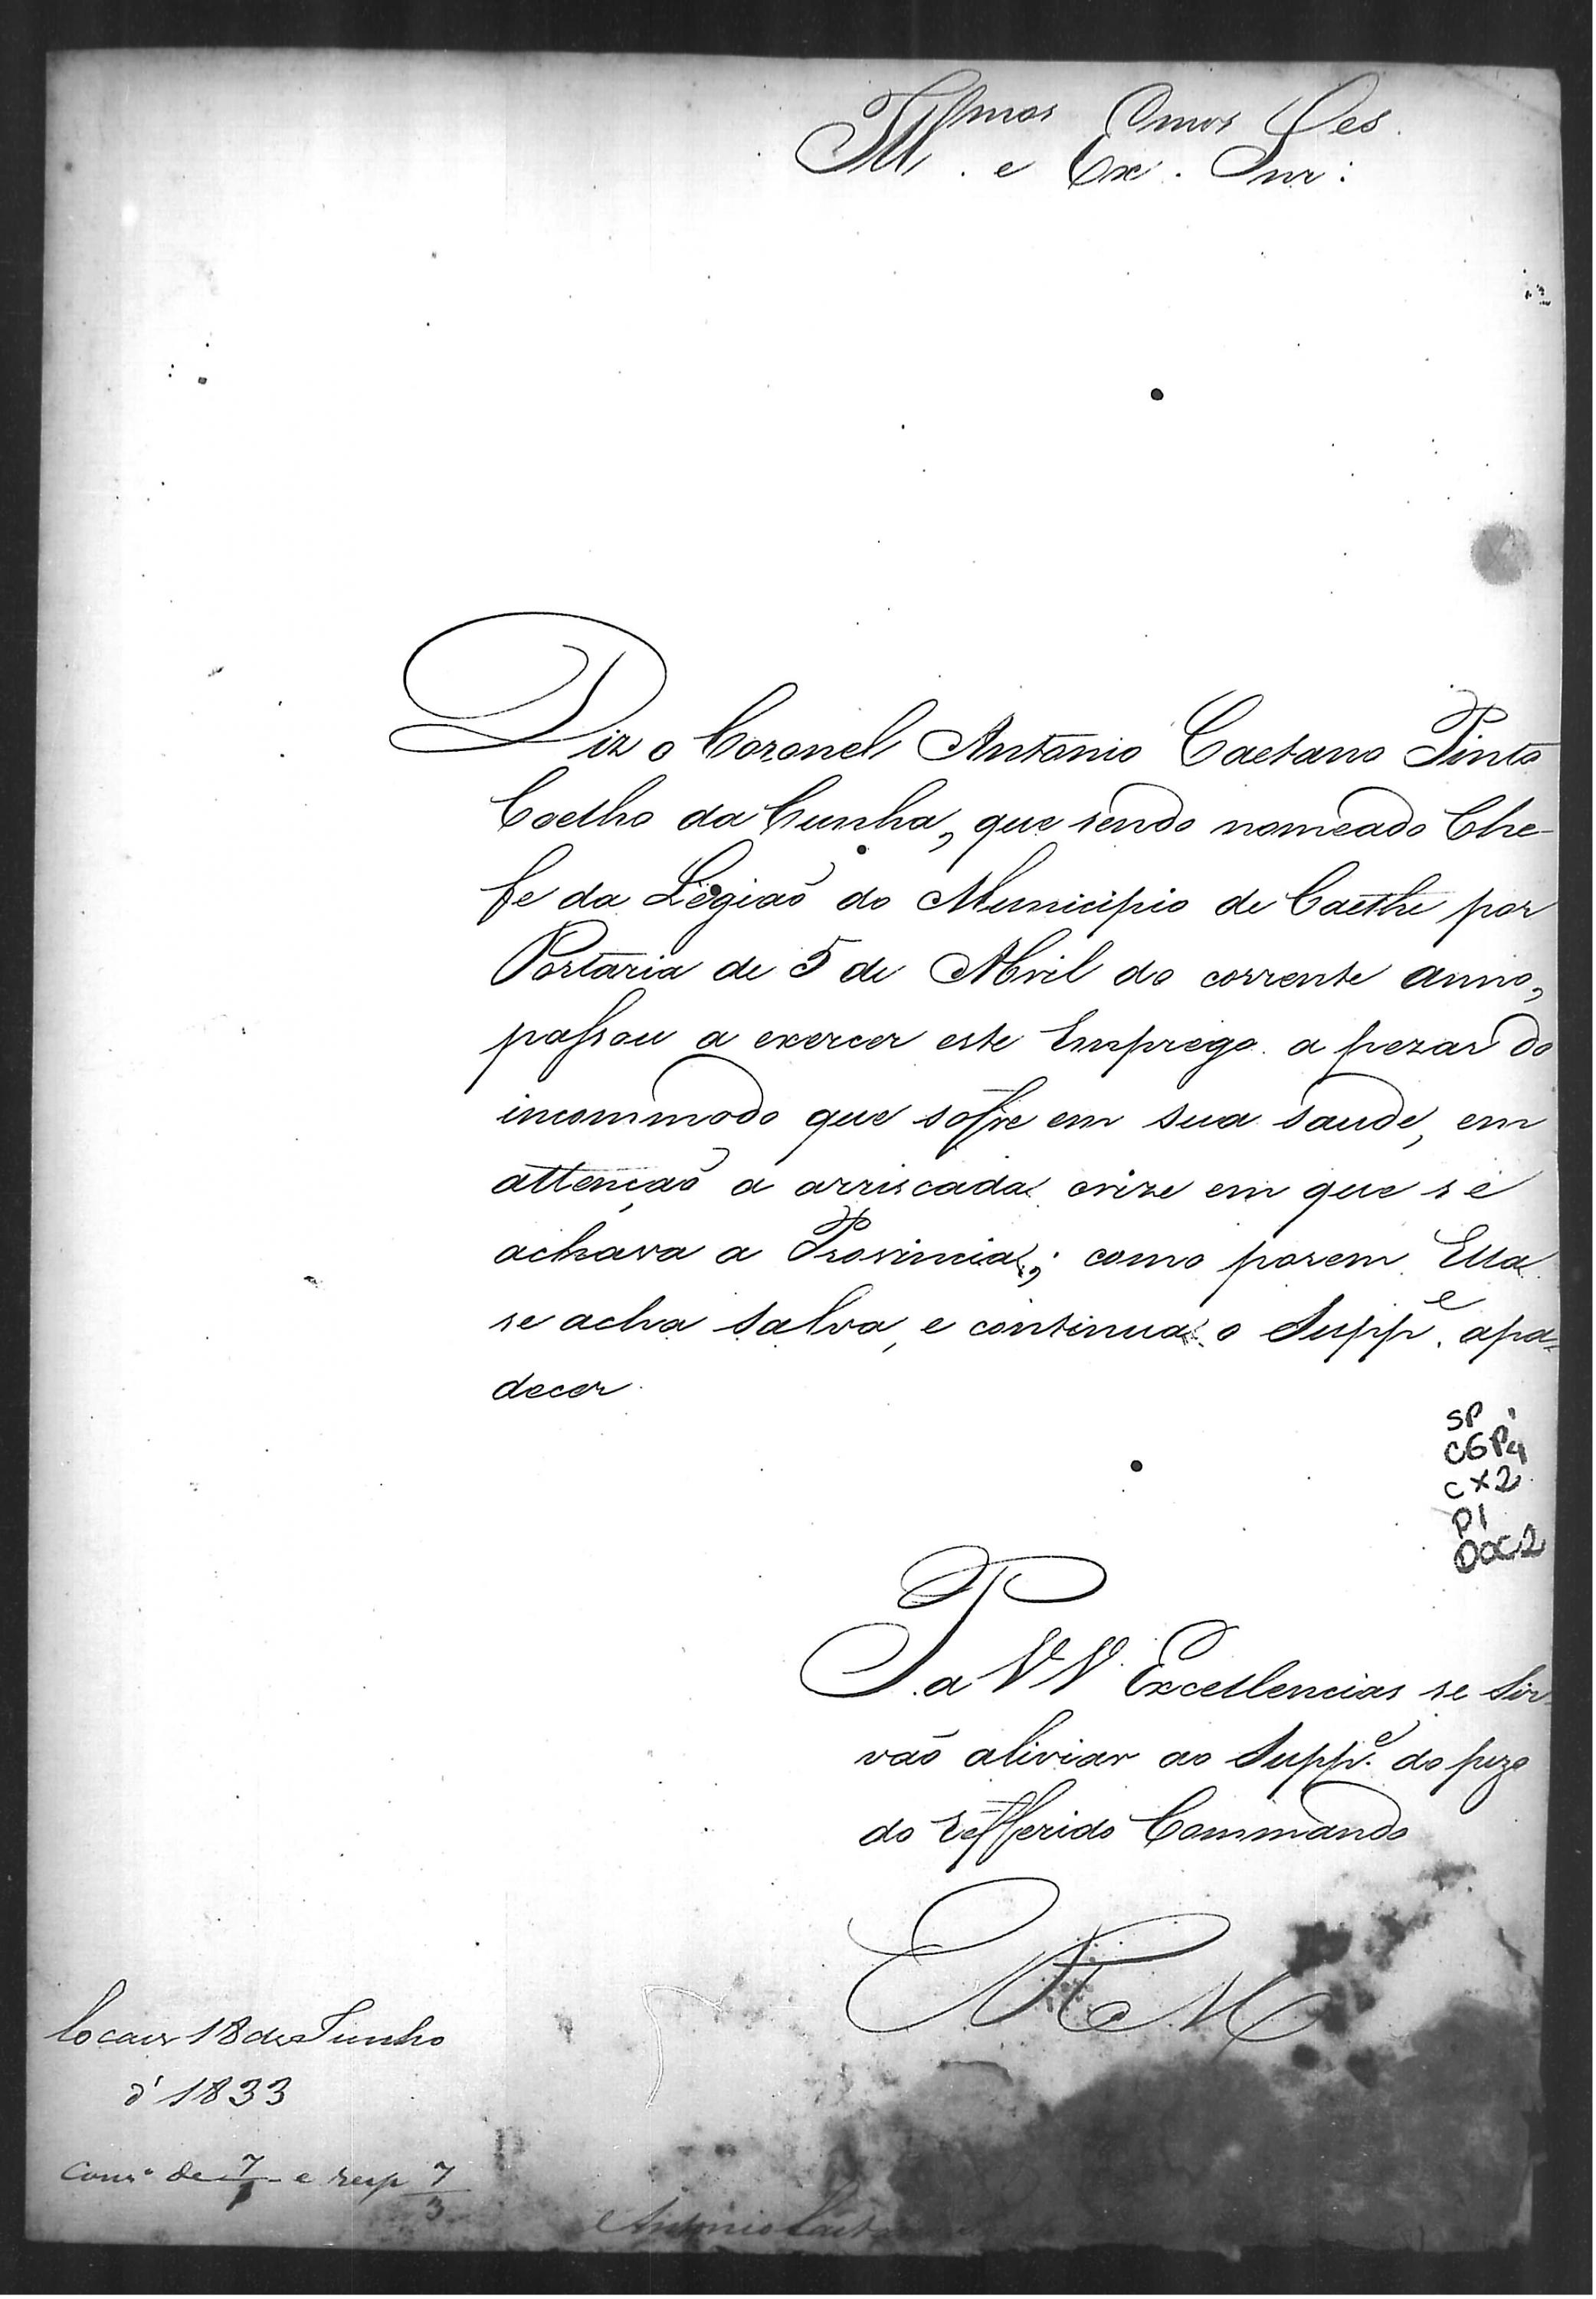 Ill.mos e Ex.mos Snr.es:
Diz o Coronel Antonio Caetano Pinto
Coelho da Cunha, que sendo nomeado Che-
fe da Legiaõ do Municipio de Caethe por
Portaria de 5 de Abril do corrente anno,
passou a exercer este Emprego a pezar do
incommodo que sofre em sua saude, em
attençaõ a arriscada crize em que se
achava a Provincia; como porem Ella
se acha salva, e continua o Supp.e apa-
decer
SP
CGP4
CX2
P1
DOC2
P. a VV. Excellencias se sir-
vaõ aliviar ao Supp.e do pezo
do refferido Commando
E R M
Cocaes 18 de Junho
d' 1833
de 7 e resp 7
3
Antonio Caet